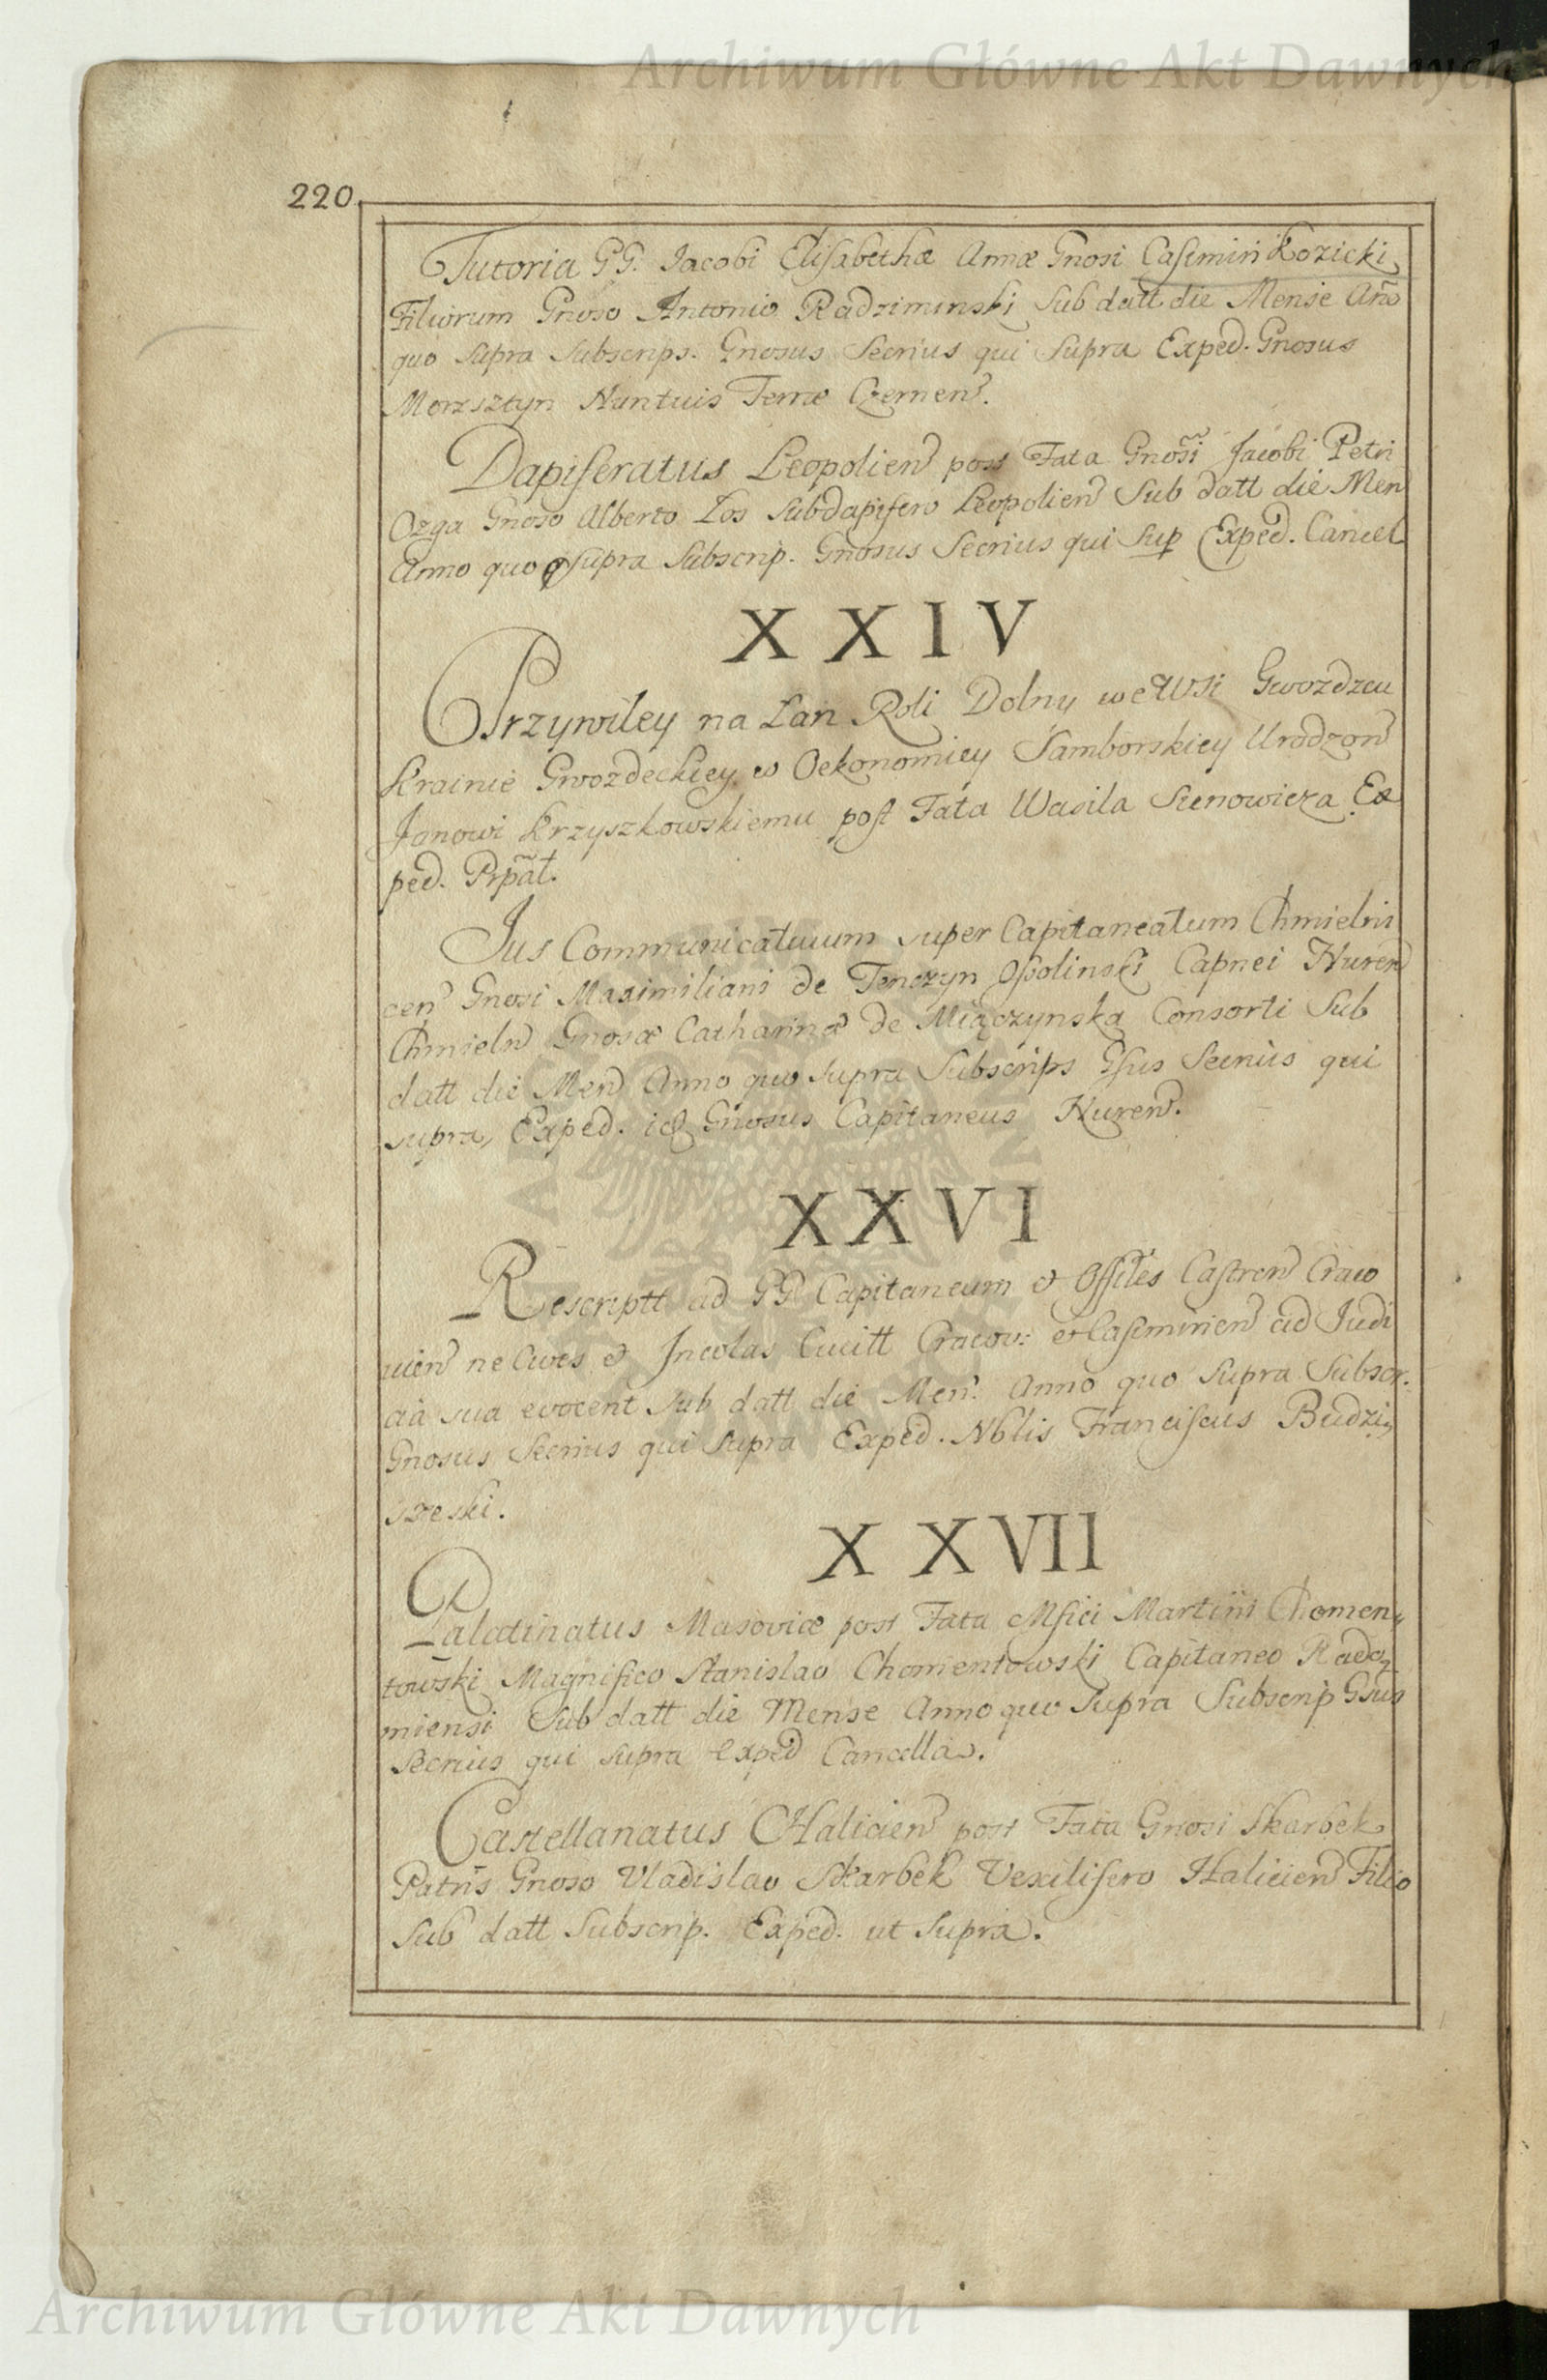 Archiwum Główne Akt Dawnych
220
Tutoria GG. Jacobi Elisabethæ Annæ Gnosi Casimiri Kozicki
Filiorum Gnoso Antonio Radziminski Sub datt die Mense Anō
quo supra Subscrips. Gnosus Secrius qui Supra Exped. Gnosus
Morzsztyn Nuntuis Terræ Czernen.
Dapiferatus Leopolien post Fata Gnosi Jacobi Petri
Ozga Gnoso Alberto Łos Subdapifero Leopolien Sub datt die Men
Anno quo supra Subscrip. Gnosus Secrius qui Sup Exped. Cancel
XXIV
Przywiley na Łan Roli Dolny we Wsi Gwozdzcu
Krainie Gwozdeckiey w Oekonomiey Samborskiey Urodzon
Janowi Krzyszkowskiemu post Fata Wasila Sienowicza Ex
ped. Prpāt.
Jus Communicativum super Capitaneatum Chmielni
cen Gnosi Maximiliani de Tenczyn Ossolinski Capnei Nuren
Chmieln Gnosæ Catharinæ de Miączynska Consorti Sub
datt die Men Anno quo supra Subscrips Gsus Secrius qui
supra, Exped. id Gnosus Capitaneus Nuren.
XXVI
Rescriptt ad GG Capitaneum et Offiles Castren Craco
vien ne Cives et Jncolas Civitt Cracov: et Casimirien ad Judi
cia sua evocent sub datt die Men. Anno quo supra Subscr.
Gnosus Secrius qui Supra Exped. Nblis Franciscus Budzi
szeski.
XXVII
Palatinatus Masoviæ post Fata Mfici Martini Chomen
towski Magnifico Stanislao Chomentowski Capitaneo Rado
miensi Sub datt die Mense Anno quo Supra Subscrip Gsus
Secrius qui supra Exped Cancella.
Castellanatus Halicien post Fata Gnosi Skarbek
Patris Gnoso Vladislao Skarbek Vexilifero Halicien Filio
Sub datt Subscrip. Exped. ut Supra.
Archiwum Główne Akt Dawnych